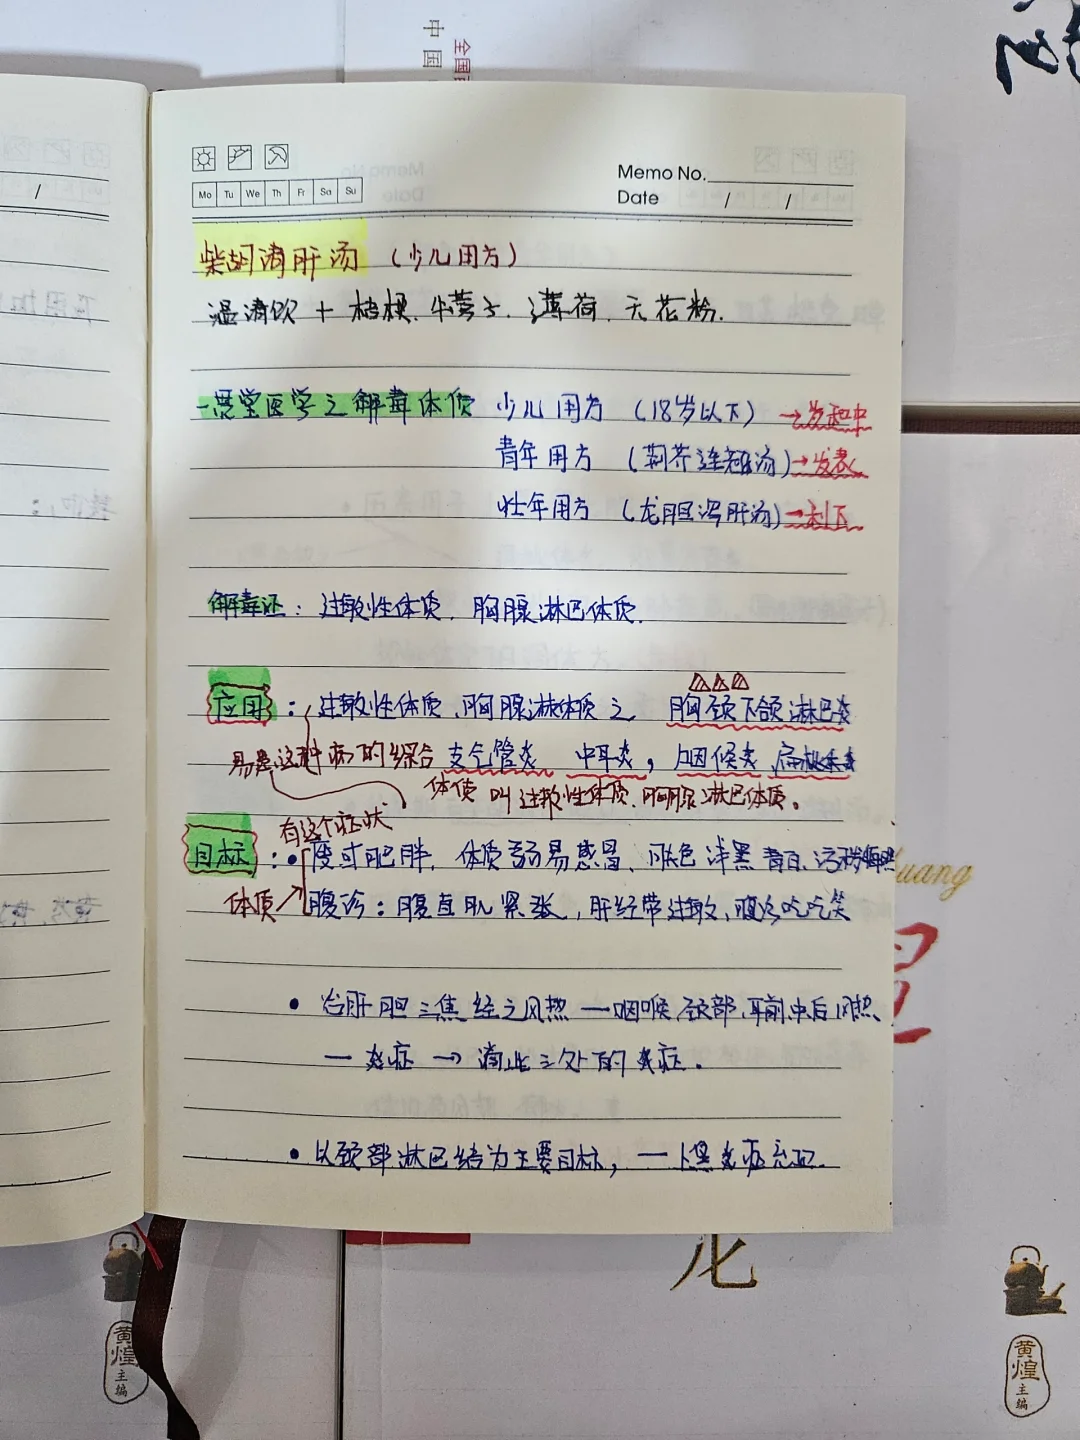 全国
中国
Memo No.
Mo Tu We Th Fr Sa Su
Date / /
柴胡清肝汤（少儿用方）
温清饮＋桔梗.牛蒡子.薄荷.天花粉.
一贯堂医学之解毒体质 少儿用方（18岁以下）→发起中
青年用方（荆芥连翘汤）→发表
壮年用方（龙胆泻肝汤）→利下
解毒证：过敏性体质.胸腺淋巴体质.
应用：过敏性体质、胸腺淋体质之 胸颈下颌淋巴炎
易患这种病的综合 支气管炎 中耳炎，咽候炎 扁桃体炎
体质叫过敏性体质、胸腺淋巴体质。
有这个症状
目标：•瘦或肥胖，体质弱易感冒、肤色浅黑 青白、
体质→腹诊：腹直肌紧张，肝经带过敏、腹诊吃吃笑
• 治肝胆三焦经之风热—咽喉.颈部.耳前中后风热、
— 炎症→清此三处的炎症。
• 以颈部淋巴结为主要目标，一
uang
龙
黄煌
主编
黄煌
主编